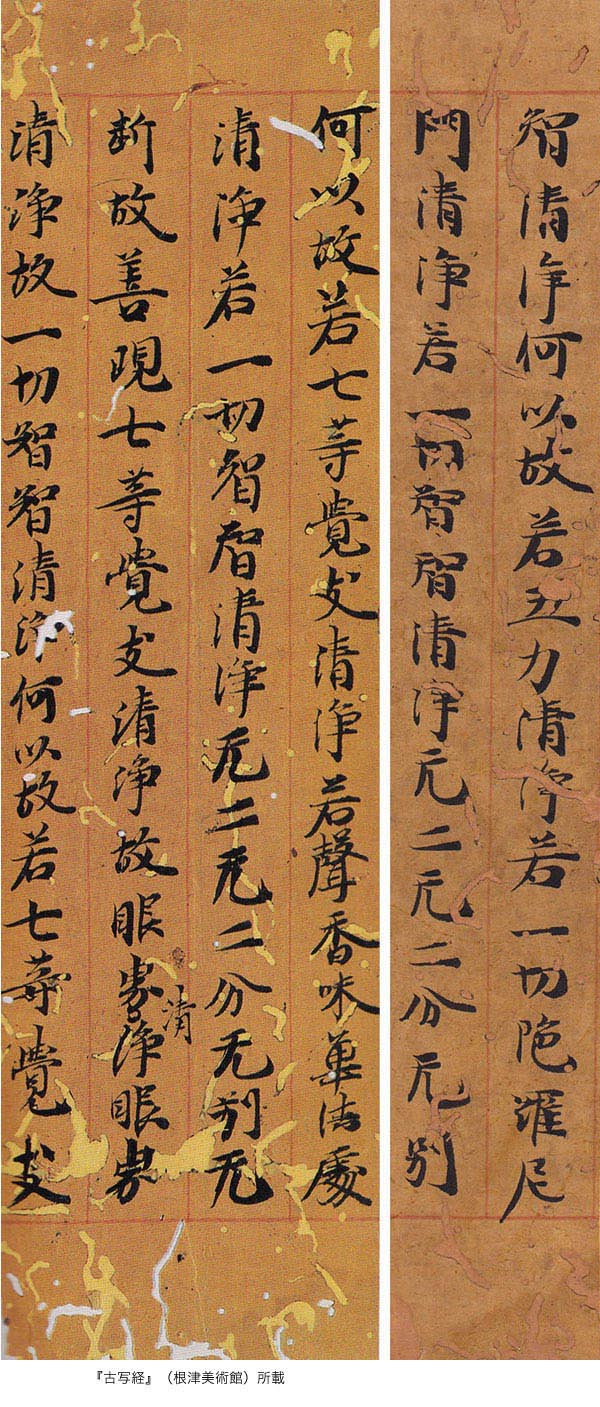 智清淨何以故若五力清淨若一切陁羅尼
門清淨若一切智智清淨无二无二分无別
何以故若七等覺支清淨若聲香味觸法處
清淨若一切智智清淨无二无二分无別无
断故善現七等覺支清淨故眼界淨眼界
清
清淨故一切智智清淨何以故若七等覺支
『古写経』（根津美術館）所載